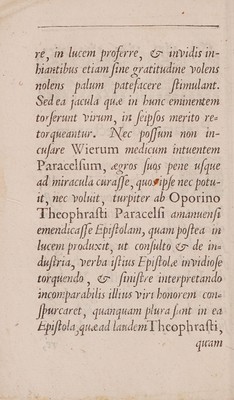 re, in lucem proferre, & invidis in-
hiantibus etiam sine gratitudine volens
nolens palum patefacere stimulant.
Sed ea jacula quæ in hunc eminentem
torserunt virum, in seipsos merito re-
torqueantur. Nec possum non in-
cusare Wierum medicum intuentem
Paracelsum, ægros suos pene usque
ad miracula curasse, quos ipse nec potu-
it, nec voluit, turpiter ab Oporino
Theophrasti Paracelsi amanuensi
emendicasse Epistolam, quam postea in
lucem produxit, ut consulto & de in-
dustria, verba istius Epistolæ invidiose
torquendo, & sinistre interpretando
incomparabilis illius viri honorem con-
spurcaret, quanquam plura sant in ea
Epistola, quæ ad laudem Theophrasti,
quam